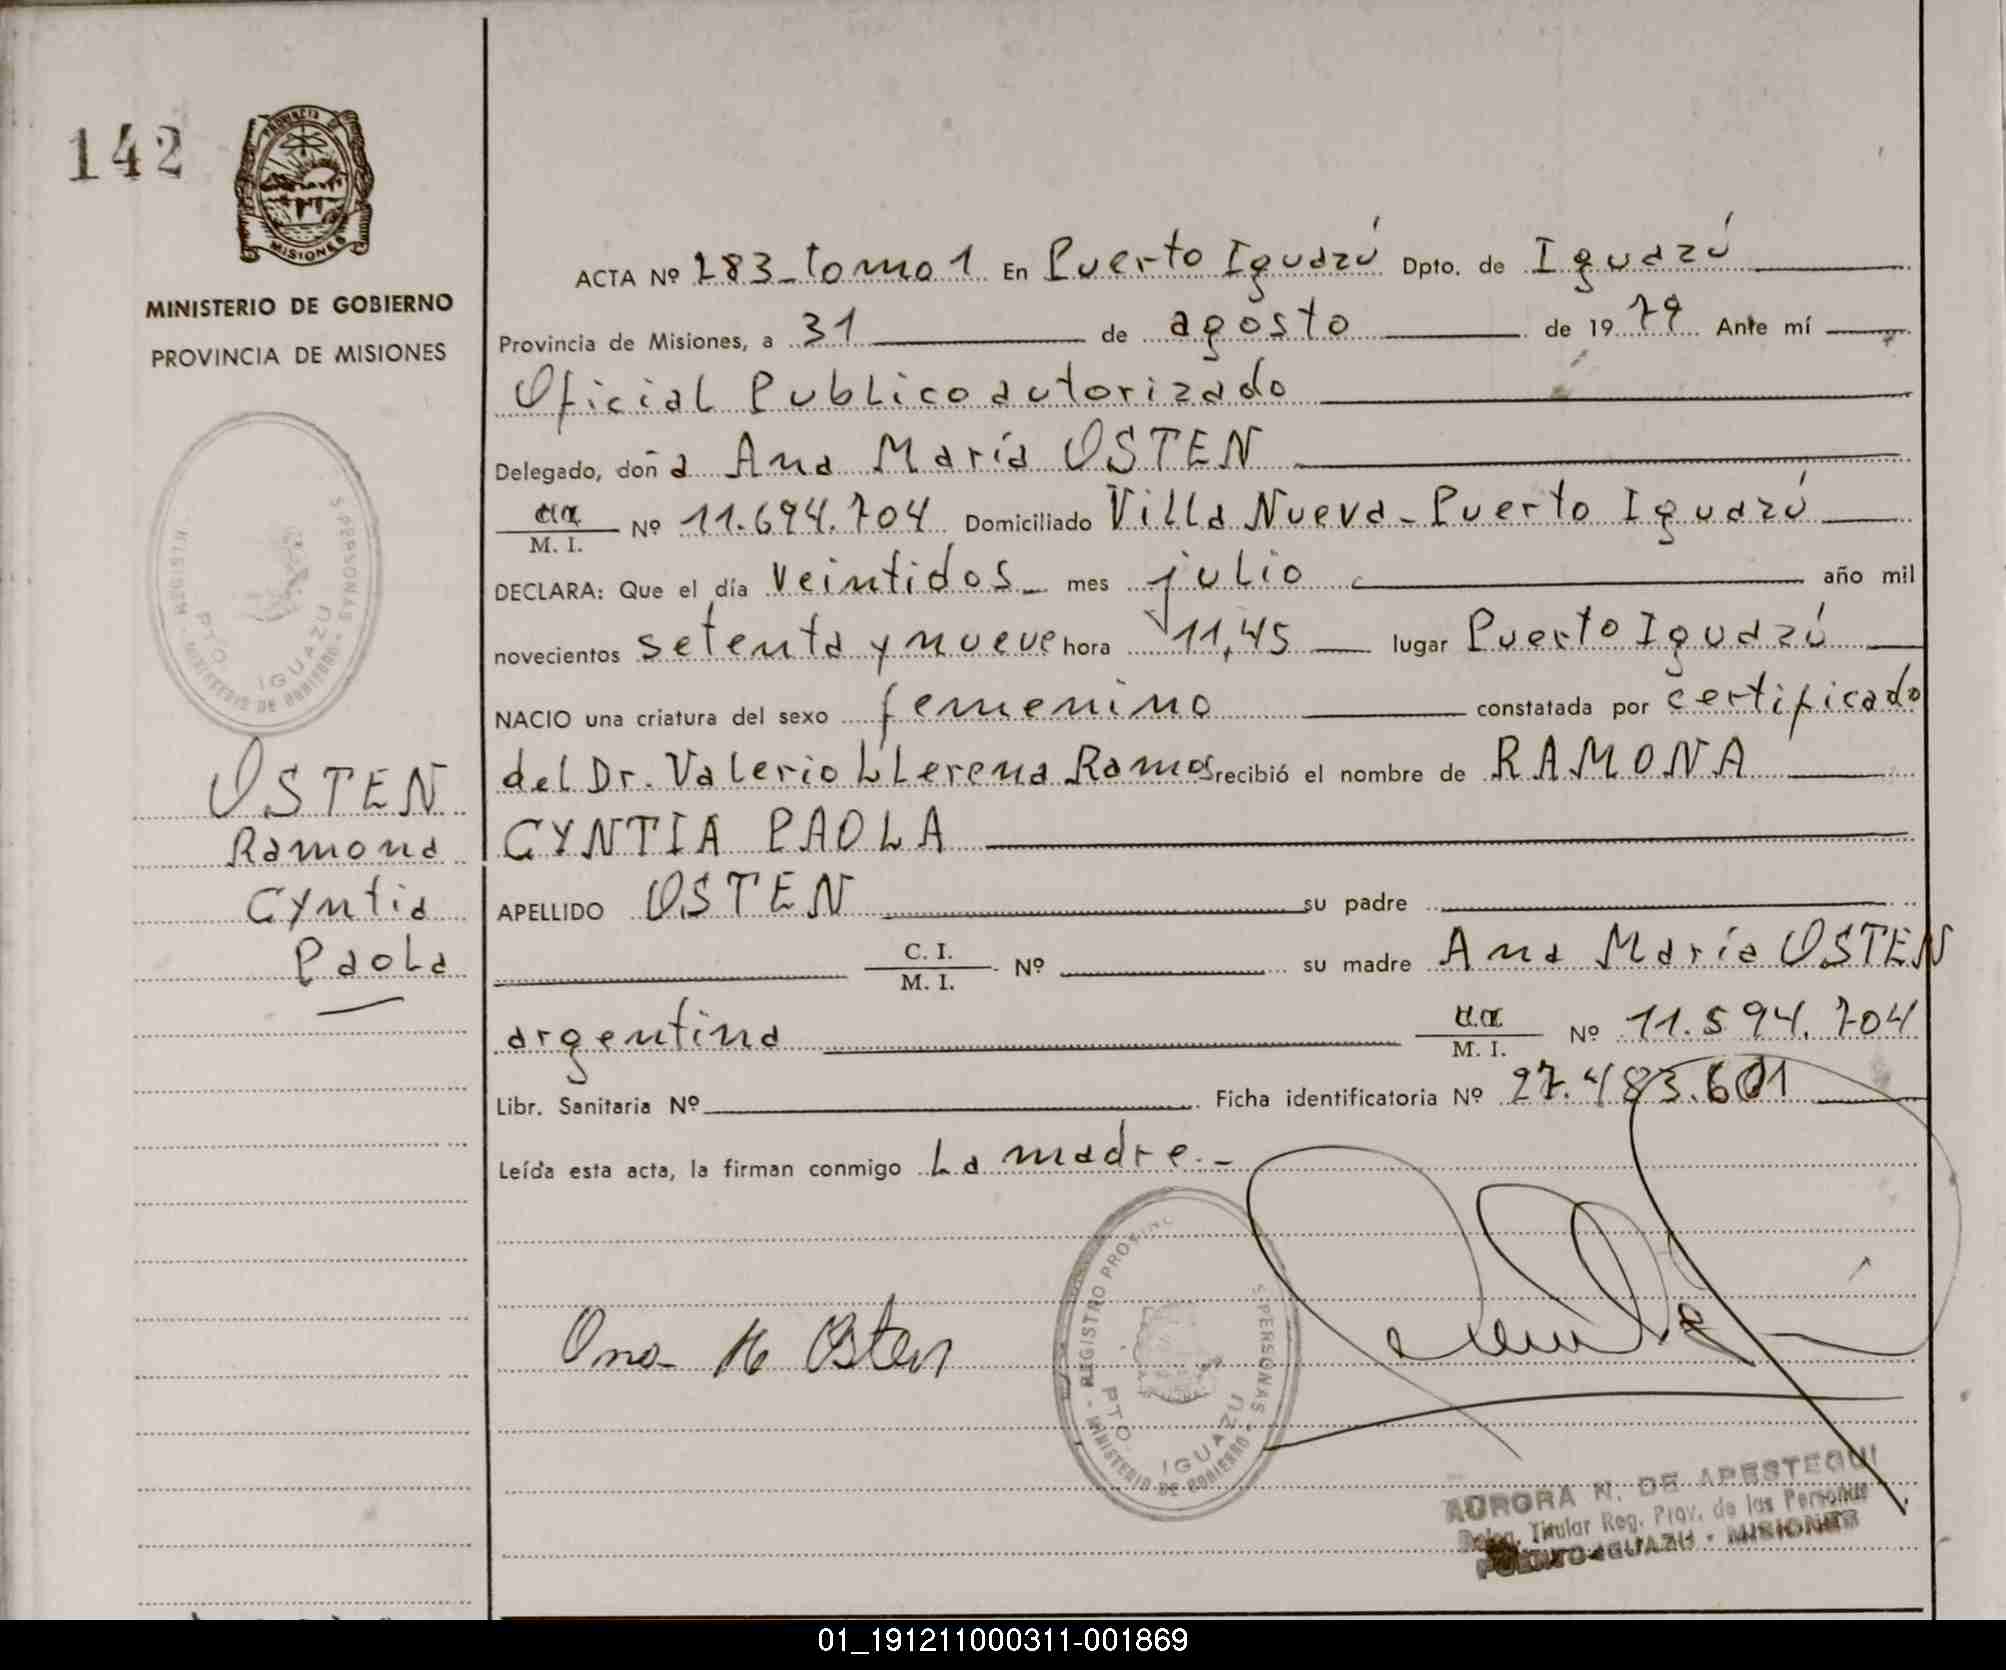 142
PROVINCIA DE
MISIONES
MINISTERIO DE GOBIERNO
PROVINCIA DE MISIONES
ACTA Nº 283 - tomo 1 En Puerto Iguazú Dpto. de Iguazú
Provincia de Misiones, a 31 de agosto de 1979 Ante mí
Oficial Publico autorizado
Delegado, doña Ana María OSTEN
M. I. Nº 11.694.704 Domiciliado Villa Nueva - Puerto Iguazú
DECLARA: Que el día veintidos - mes julio año mil
novecientos setenta y nueve hora 11,45 lugar Puerto Iguazú
NACIO una criatura del sexo femenino constatada por certificado
del Dr. Valerio LLerena Ramos recibió el nombre de RAMONA
CYNTIA PAOLA
APELLIDO OSTEN su padre
C. I.
M. I. Nº su madre Ana María OSTEN
argentina M. I. Nº 11.594.704
Libr. Sanitaria Nº Ficha identificatoria Nº 27.483.601
Leída esta acta, la firman conmigo La madre.-
OSTEN
Ramona
Cyntia
Paola
PERSONAS - MINISTERIO DE GOBIERNO
PTO. IGUAZU
Ana M Osten
REGISTRO PROVINC
PERSONAS - MINISTERIO DE GOBIERNO
PTO. IGUAZU
AURORA N. DE APESTEGUI
Deleg. Titular Reg. Prov. de las Personas
PUERTO IGUAZU - MISIONES
01_191211000311-001869